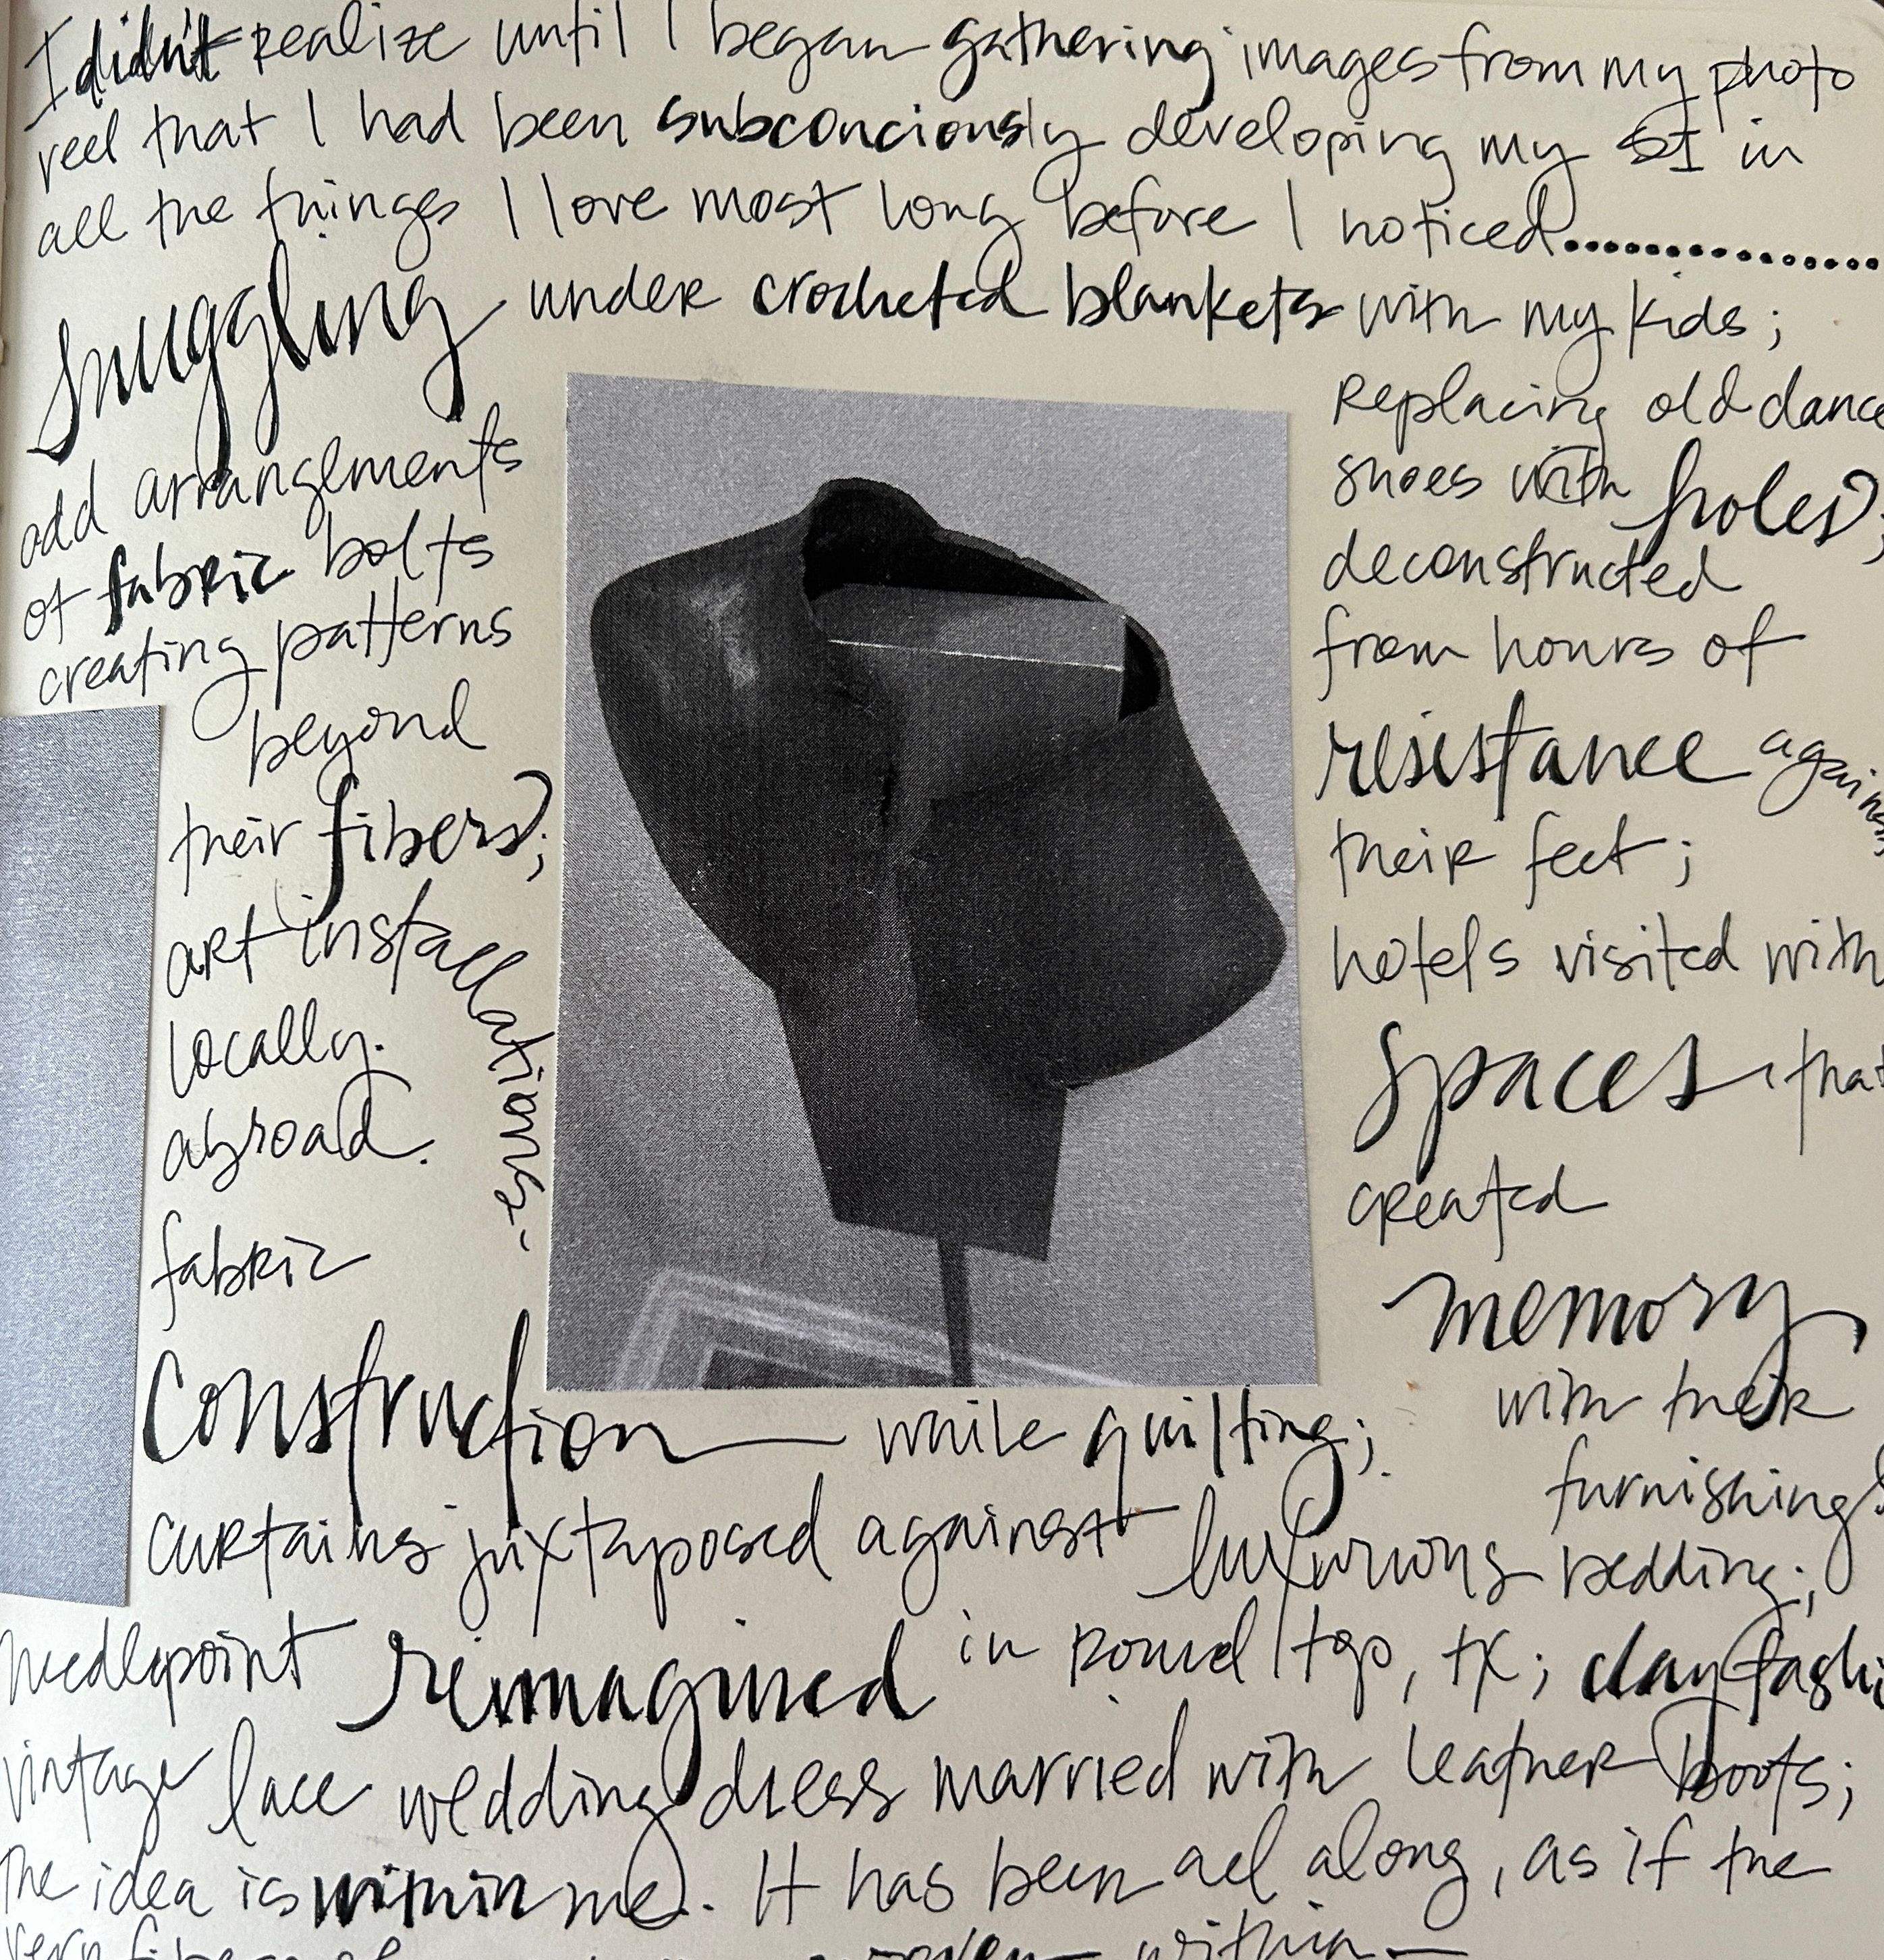 I didn't realize until I began gathering images from my photo
reel that I had been subconciously developing my SI in
all the things I love most long before I noticed...............
Snuggling under crocheted blankets with my kids;
odd arrangements
of fabric bolts
creating patterns
beyond
their fibers;
art installations-
locally.
abroad.
fabric
construction while quilting;
replacing old dance
shoes with holes;
deconstructed
from hours of
resistance against
their feet;
hotels visited with
spaces that
created
memory
with their
furnishings
curtains juxtaposed against luxurious bedding;
needlepoint reimagined in round top, tx; clay fashi
vintage lace wedding dress married with leather boots;
the idea is within me. It has been all along, as if the
very woven within